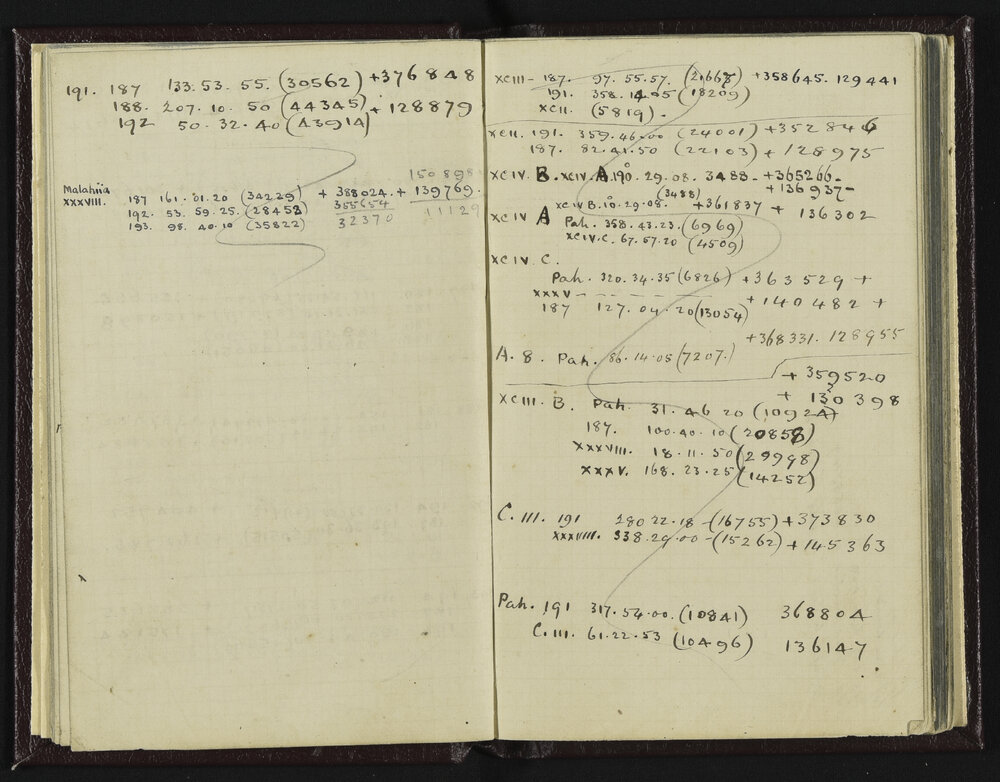 191. 187 133. 53. 55. (30562) +376848
188. 207. 10. 50 (44345) + 128879
192 50. 32. 40 (43914)
150 898
Malahiia
XXXVIII. 187 161. 01. 20 (34229) + 388024. + 139769.
192. 53. 59. 25. (28453) 355654 11129
193. 98. 40. 10 (35822) 32370
XCIII - 187. 97. 55. 57. (21668) +358645. 129441
191. 358. 14 05 (18209)
XCII. (5819).
XCII. 191. 359. 46. 00 (24001) +352846
187. 82. 41. 50 (22103) + 128975
XCIV. B. XCIV. A. 190. 29. 08. 3488 - +365266 -
+136937 -
(3488)
XCIV B. 10. 29. 08. +361837 + 136302
XCIV A Pah. 358. 43. 23. (6969)
XCIV. C. 67. 57. 20 (4509)
XCIV. C.
Pah. 320. 34. 35 (6826) +363529 +
XXXV - - - + 140482 +
187 127. 04. 20 (13054)
+368331. 128955
A. 8. Pah. 86. 14. 05 (7207.)
+ 359520
+ 130398
XCIII. B. Pah. 31. 46 20 (10924)
187. 100. 40. 10 (20858)
XXXVIII. 18. 11. 50 (29998)
XXXV. 168. 23. 25 (14252)
C. III. 191 280 22. 18 - (16755) +373830
XXXVIII. 338. 29. 00 - (15262) + 145363
Pah. 191 317. 54. 00. (10841) 368804
C. III. 61. 22. 53 (10496) 136147